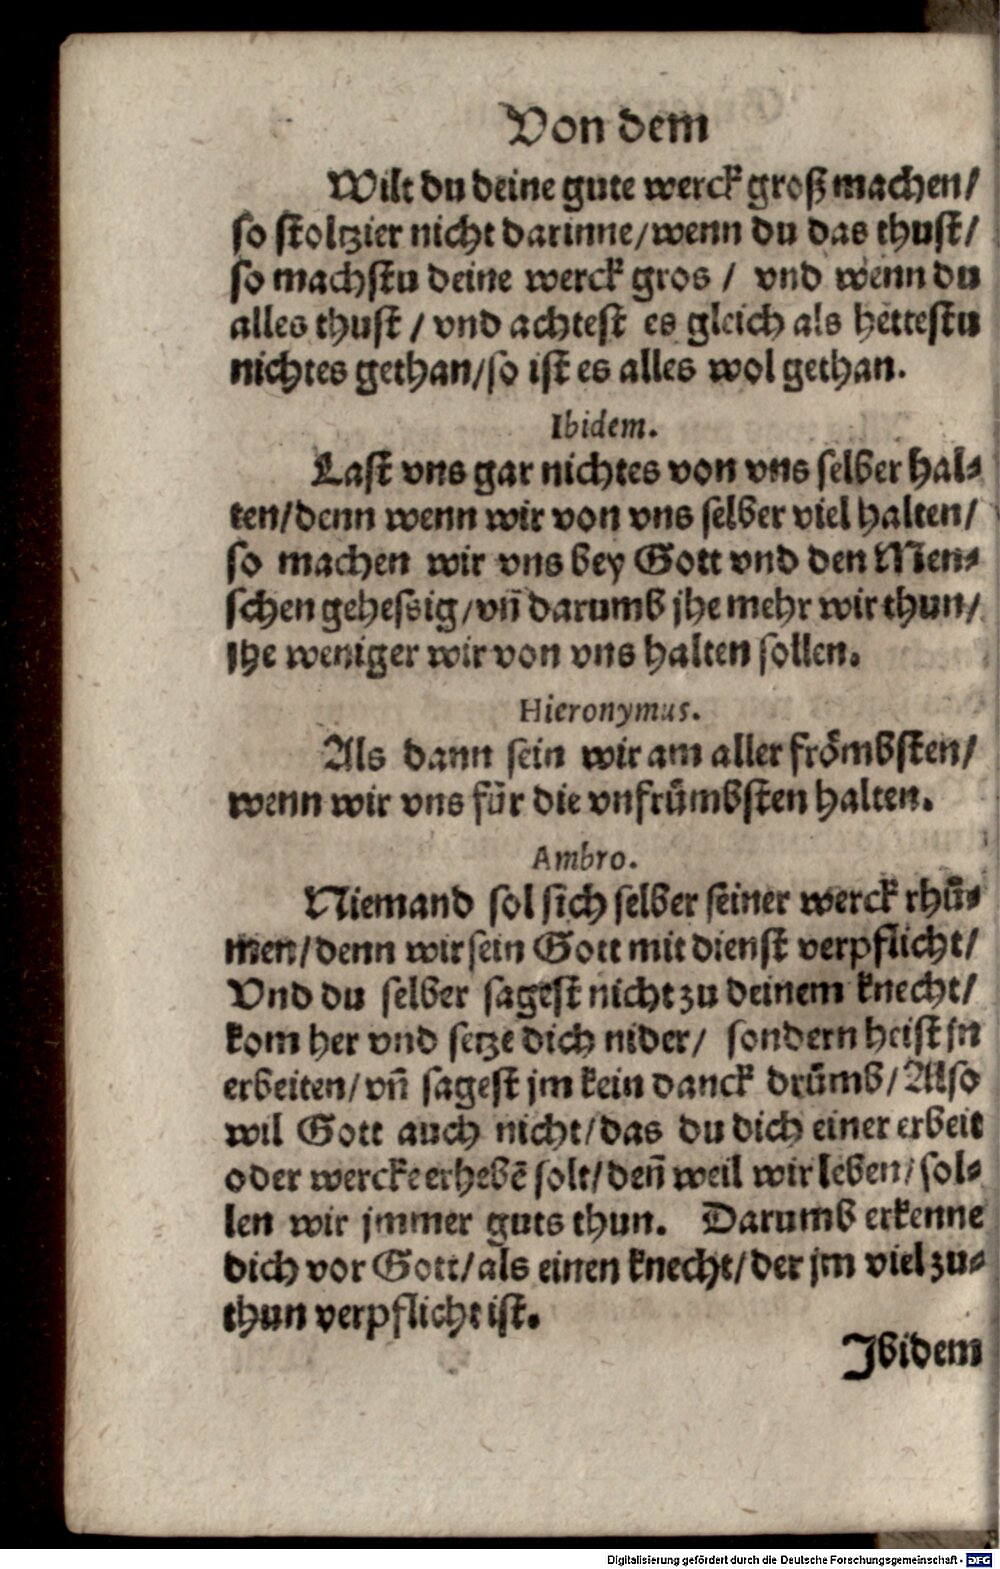 Von dem
Wilt du deine gute werck groß machen/
so stoltzier nicht darinne/wenn du das thust/
so machstu deine werck gros / vnd wenn du
alles thust / vnd achtest es gleich als hettestu
nichtes gethan/so ist es alles wol gethan.
Ibidem.
Last vns gar nichtes von vns selber hal⸗
ten/denn wenn wir von vns selber viel halten/
so machen wir vns bey Gott vnd den Men⸗
schen gehessig/vn̄ darumb jhe mehr wir thun/
jhe weniger wir von vns halten sollen.
Hieronymus.
Als dann sein wir am aller frömbsten/
wenn wir vns für die vnfrümbsten halten.
Ambro.
Niemand sol sich selber seiner werck rhü⸗
men/denn wir sein Gott mit dienst verpflicht/
Vnd du selber sagest nicht zu deinem knecht/
kom her vnd setze dich nider/ sondern heist jn
erbeiten/vn̄ sagest jm kein danck drümb/Also
wil Gott auch nicht/das du dich einer erbeit
oder wercke erhebē solt/den̄ weil wir leben/sol⸗
len wir jmmer guts thun. Darumb erkenne
dich vor Gott/als einen knecht/der jm viel zu⸗
thun verpflicht ist.
Jbidem
Digitalisierung gefördert durch die Deutsche Forschungsgemeinschaft - DFG